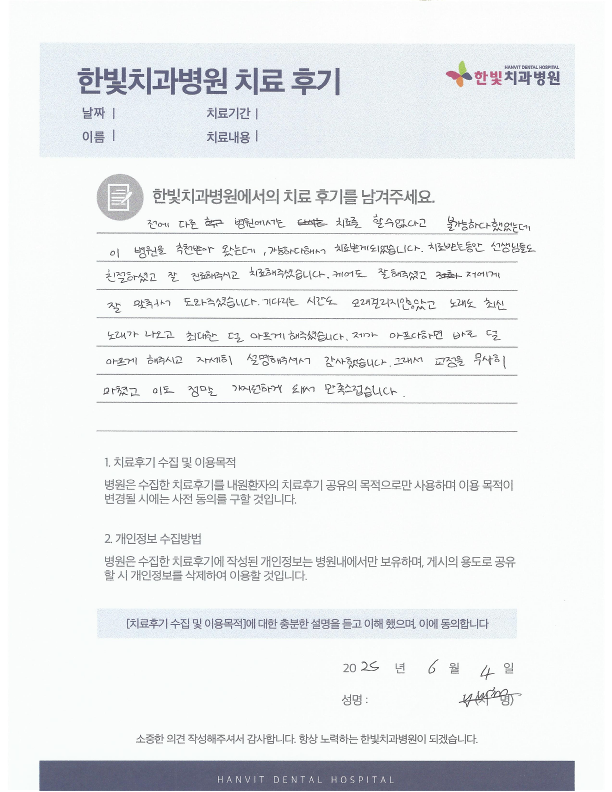 한빛치과병원 치료 후기
HANVIT DENTAL HOSPITAL
한빛치과병원
날짜 | 치료기간 |
이름 | 치료내용 |
한빛치과병원에서의 치료 후기를 남겨주세요.
전에 다른 병원에서는 치료를 할수없다고 불가능하다했었는데
이 병원을 추천받아 왔는데, 가능하다해서 치료받게되었습니다. 치료받는동안 선생님들도
친절하셨고 잘 진료해주시고 치료해주셨습니다. 케어도 잘해주셨고 저에게
잘 맞춰서 도와주셨습니다. 기다리는 시간도 오래걸리지않았고 노래도 최신
노래가 나오고 최대한 덜 아프게 해주셨습니다. 제가 아프다하면 바로 덜
아프게 해주시고 자세히 설명해주셔서 감사했습니다. 그래서 교정을 무사히
마쳤고 이도 정말 가지런하게 돼서 만족스럽습니다.
1. 치료후기 수집 및 이용목적
병원은 수집한 치료후기를 내원환자의 치료후기 공유의 목적으로만 사용하며 이용 목적이
변경될 시에는 사전 동의를 구할 것입니다.
2. 개인정보 수집방법
병원은 수집한 치료후기에 작성된 개인정보는 병원내에서만 보유하며, 게시의 용도로 공유
할 시 개인정보를 삭제하여 이용할 것입니다.
[치료후기 수집 및 이용목적]에 대한 충분한 설명을 듣고 이해 했으며, 이에 동의합니다
2025 년 6 월 4 일
성명 :
소중한 의견 작성해주셔서 감사합니다. 항상 노력하는 한빛치과병원이 되겠습니다.
HANVIT DENTAL HOSPITAL